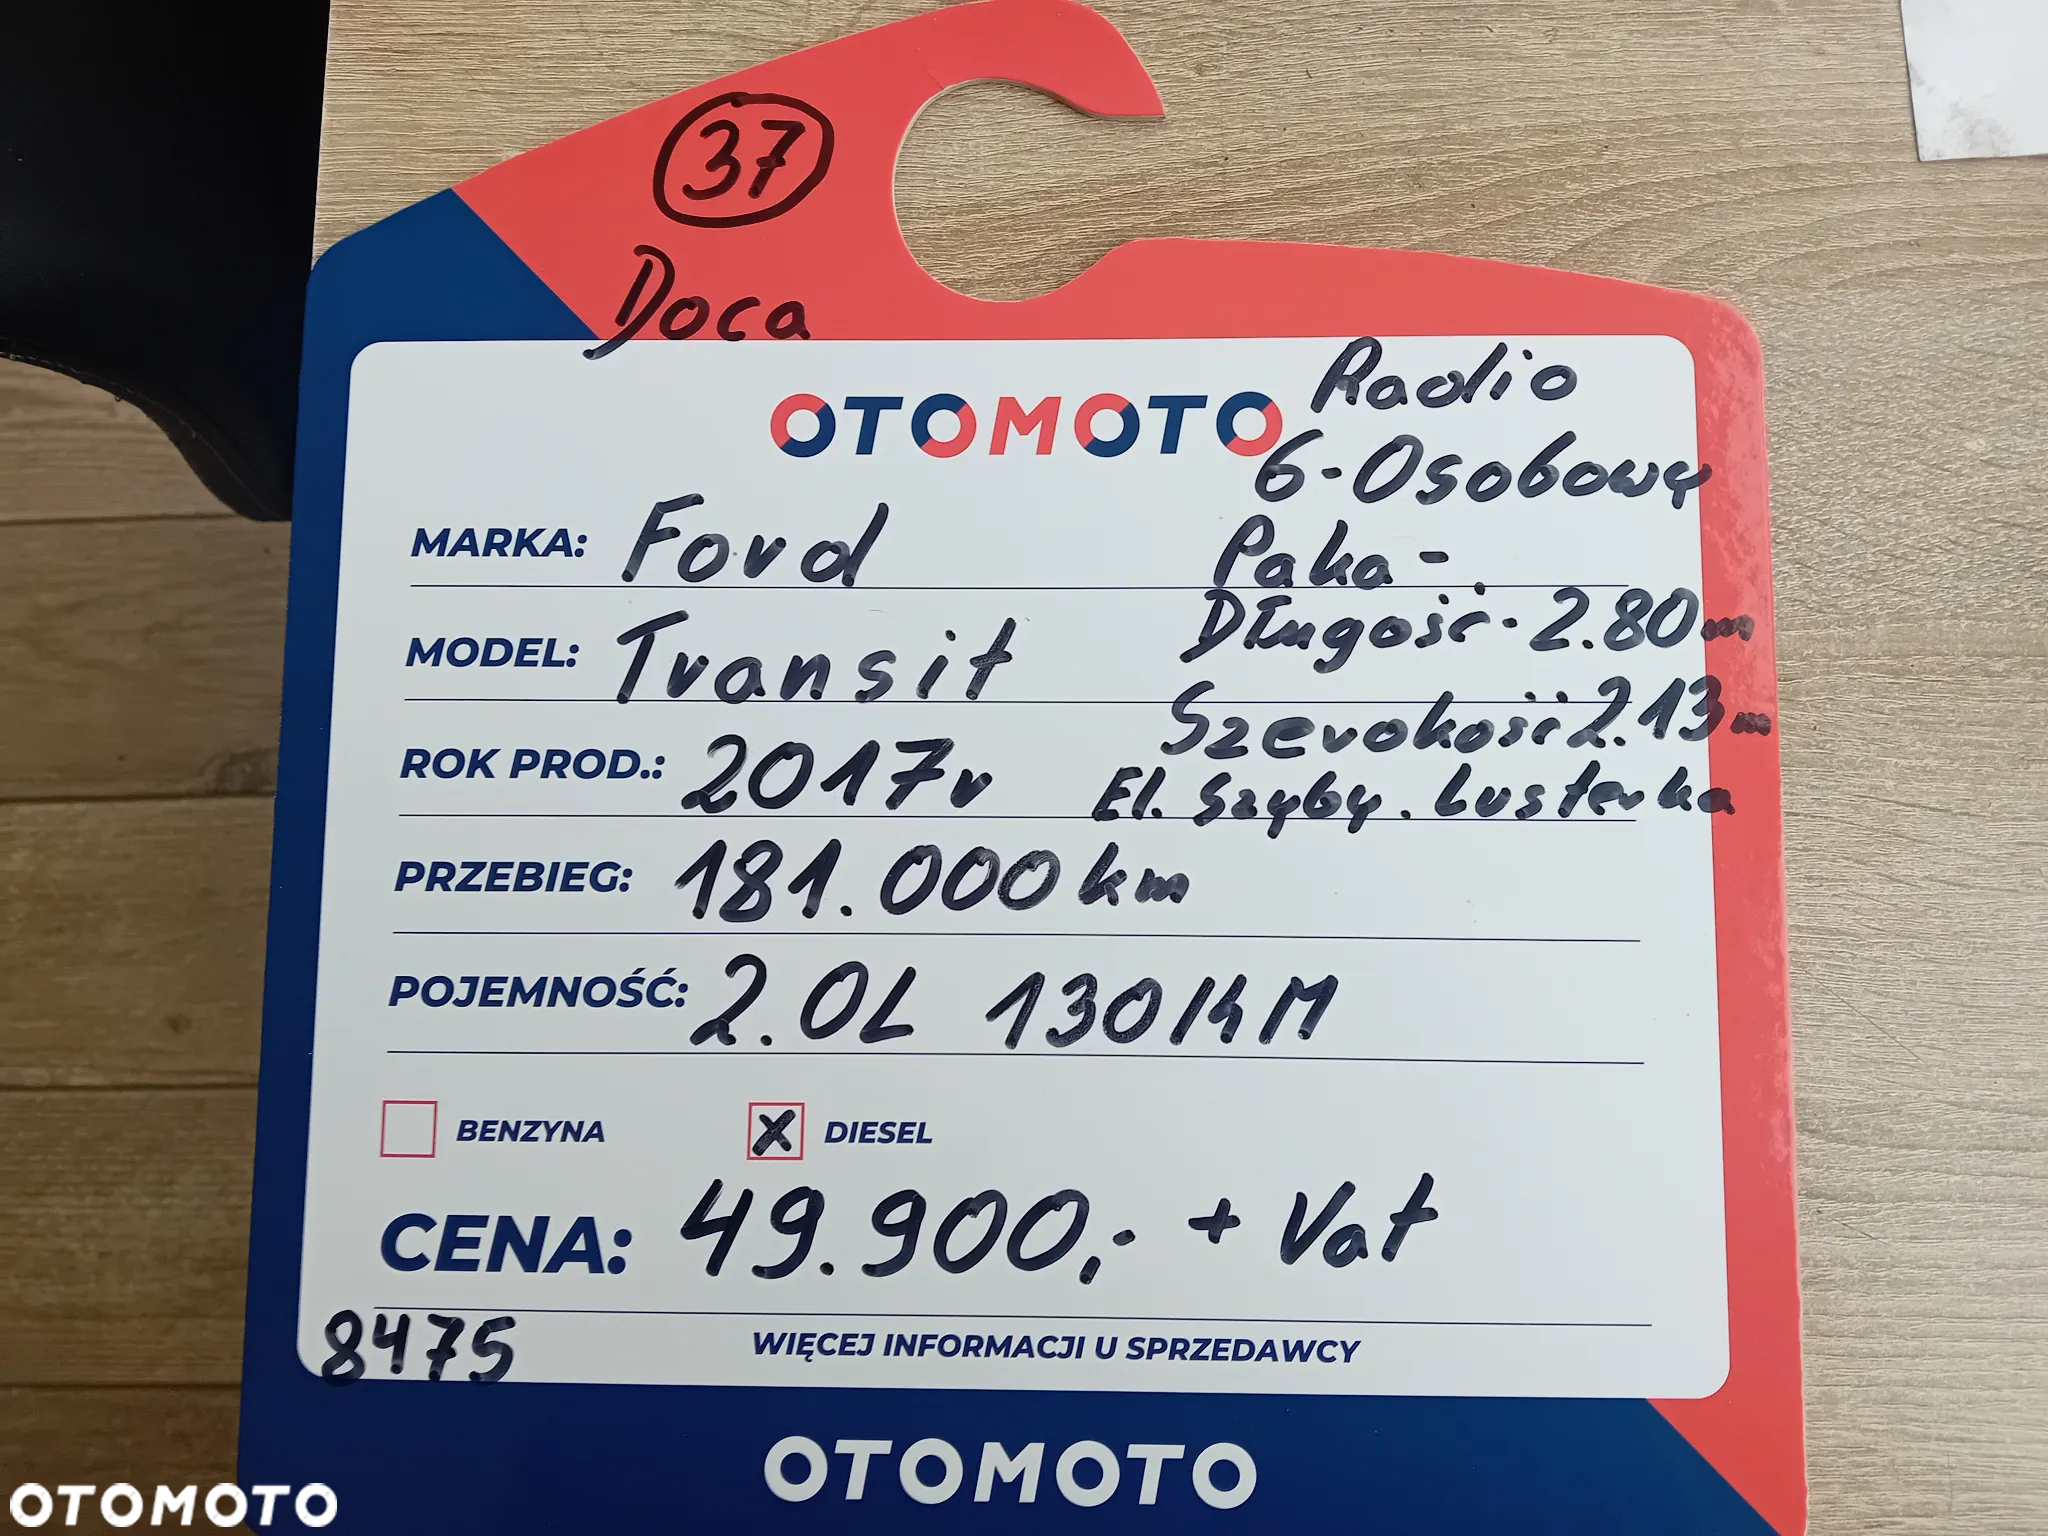 37
Doca
OTOMOTO
Radio
6-Osobowy
MARKA: Ford
Paka-
Długość-2.80m
MODEL: Transit
Szerokość 2.13m
ROK PROD.: 2017r
El. Szyby. Lusterka
PRZEBIEG: 181.000km
POJEMNOŚĆ: 2.0L 130KM
BENZYNA X DIESEL
CENA: 49.900,- + Vat
8475
WIĘCEJ INFORMACJI U SPRZEDAWCY
OTOMOTO
OTOMOTO